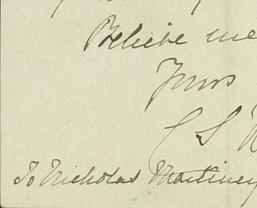 Believe me
Yours
C S
To Nicholas Martiney